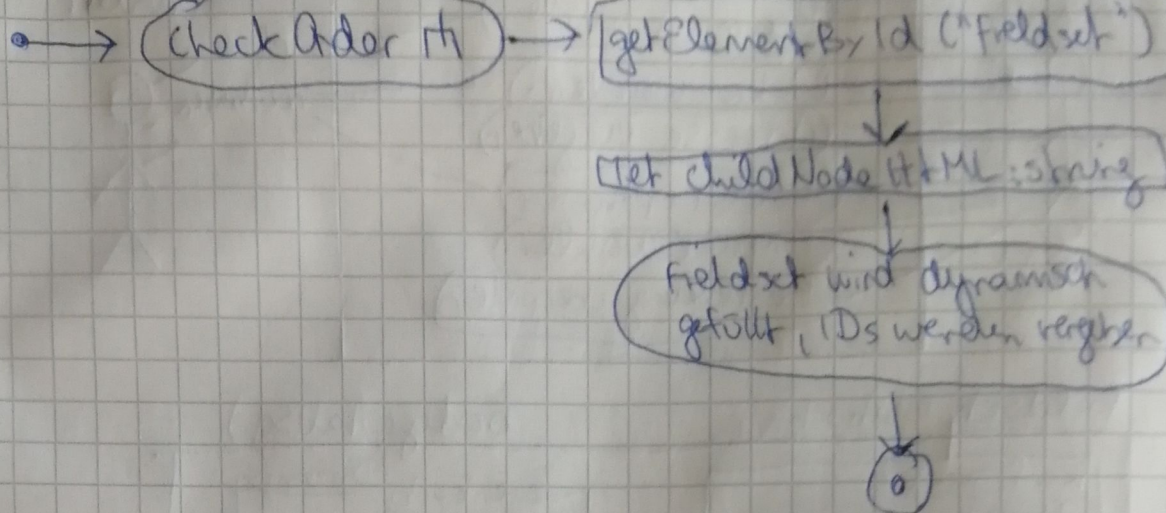 check
getElementById ("fieldset")
childNode HTML: string
Fieldset wird dynamisch
gefüllt, IDs werden vergeben